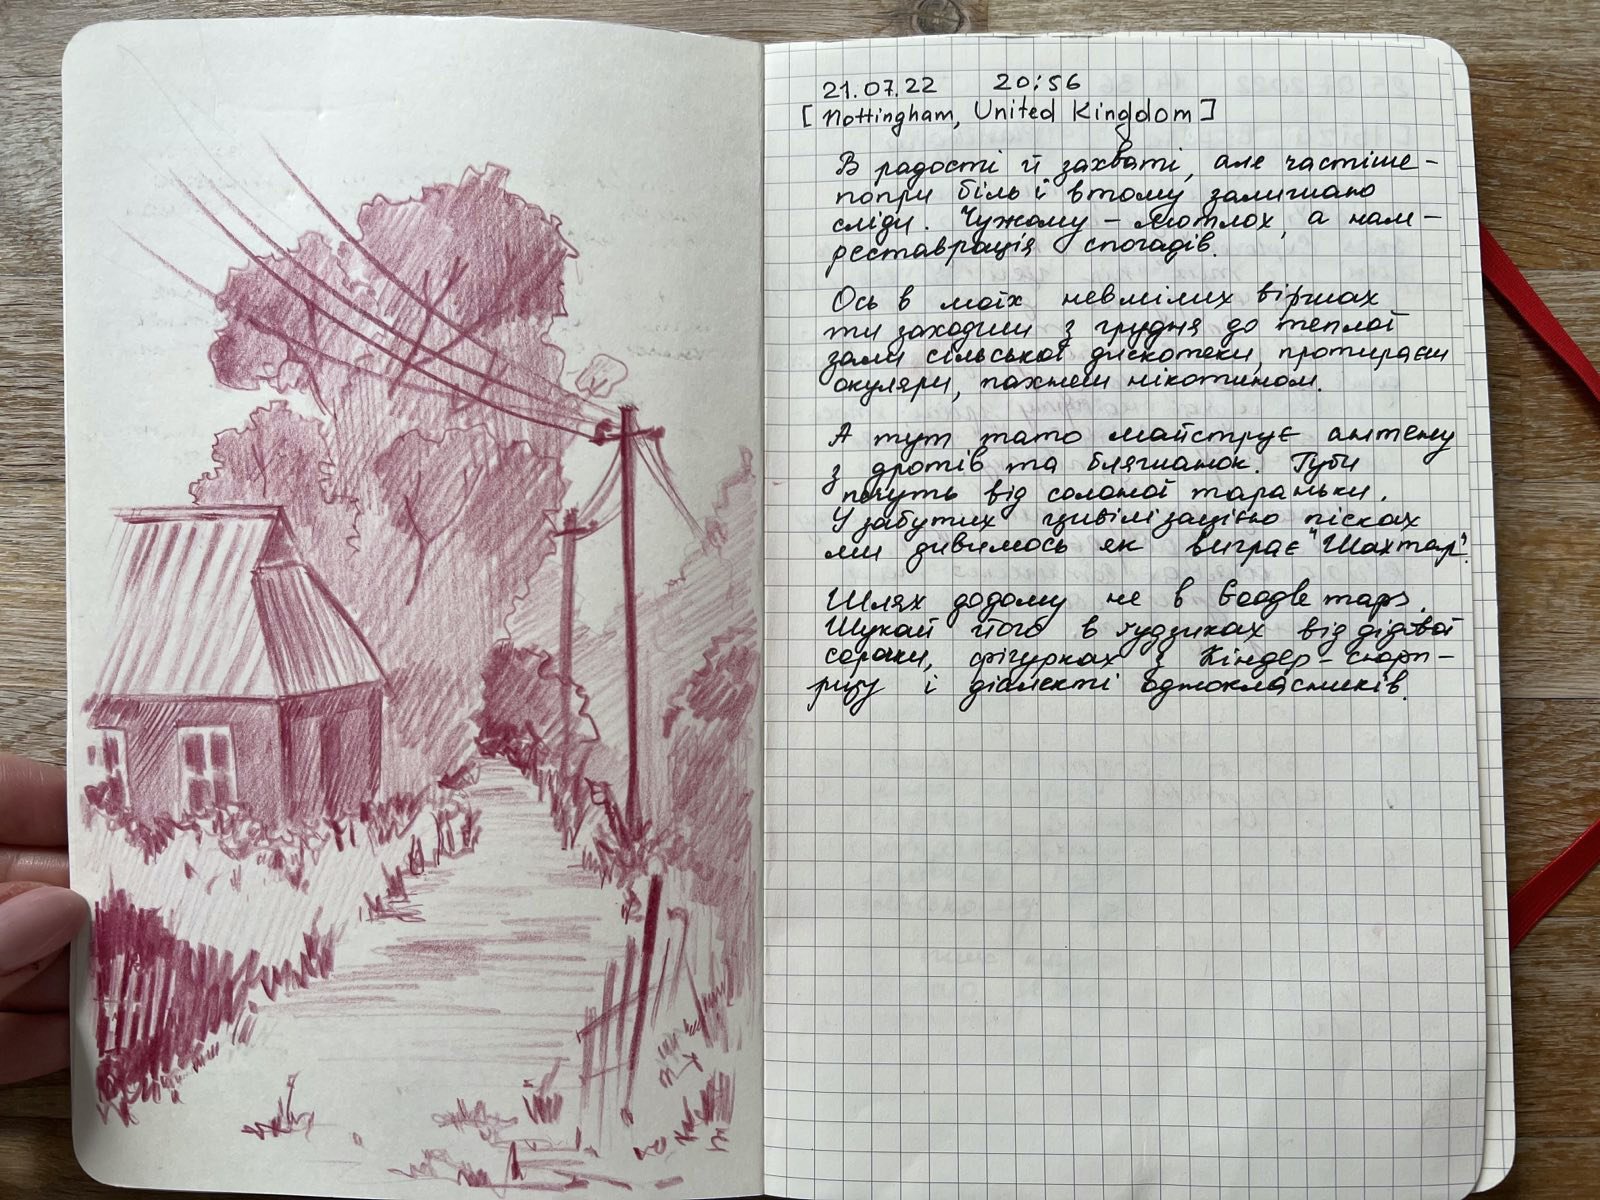 21.07.22 20:56
[Nottingham, United Kingdom]
В радості й захваті, але частіше -
попри біль і втому залишаю
сліди. Чужому - мотлох, а нам -
реставрація спогадів.
Ось в моїх невмілих віршах
ти заходиш з грудня до теплої
зали сільської дискотеки, протираєш
окуляри, пахнеш нікотином.
А тут тато майструє антену
з дротів та бляшанок. Губи
печуть від солоної тараньки.
У забутих цивілізацією пісках
ми дивимось як виграє "Шахтар".
Шлях додому не в Google maps.
Шукай його в ґудзиках від дідової
сорочки, фігурках з Кіндер-сюрп-
ризу і діалекті однокласників.